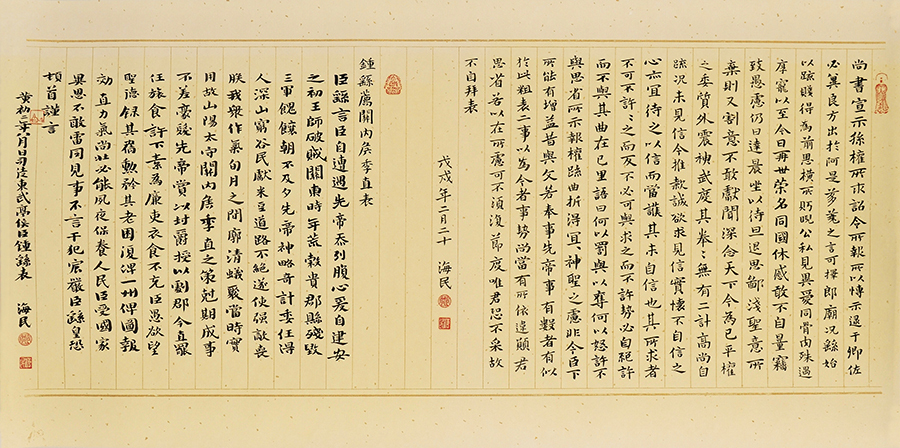 尚書宣示孫權所求詔令所報所以博示逮于卿佐
必冀良方出於阿是芻蕘之言可擇郎廟況繇始
以疏賤得為前恩橫所盻睨公私見異愛同骨肉殊遇
厚寵以至今日再世榮名同國休慼敢不自量竊
致愚慮仍日達晨坐以待旦退思鄙淺聖意所
棄則又割意不敢獻聞深念天下今為已平權
之委質外震神武度其拳々無有二計高尚自
疏況未見信今推款誠欲求見信實懷不自信之
心亦宜待之以信而當護其未自信也其所求者
不可不許々之而反不必可與求之而不許勢必自絕許
而不與其曲在己里語曰何以罰與以奪何以怒許不
與思省所示報權疏曲折得宜々神聖之慮非今臣下
所能有增益昔與文若奉事先帝事有數者有似
於此粗表二事以為今者事勢尚當有所依違願君
思省若以在所慮可不須復節度唯君恐不采故
不自拜表
戊戌年二月二十 海民
鍾繇薦關內侯季直表
臣繇言臣自遭遇先帝忝列腹心爰自建安
之初王師破賊關東時年荒穀貴郡縣殘毀
三軍餽饟朝不及夕先帝神略奇計委任得
人深山窮谷民獻米豆道路不絕遂使強敵喪
膽我眾作氣旬月之間廓清蟻聚當時實
用故山陽太守關內侯季直之策剋期成事
不差豪髮先帝賞以封爵授以劇郡今直罷
任旅食許下素為廉吏衣食不充臣愚欲望
聖德錄其舊勳矜其老困復俾一州俾圖報
効直力氣尚壯必能夙夜保養人民臣受國家
異恩不敢雷同見事不言干犯宸嚴臣繇皇恐
頓首謹言
黃初二年八月日司徒東武亭侯臣鍾繇表 海民